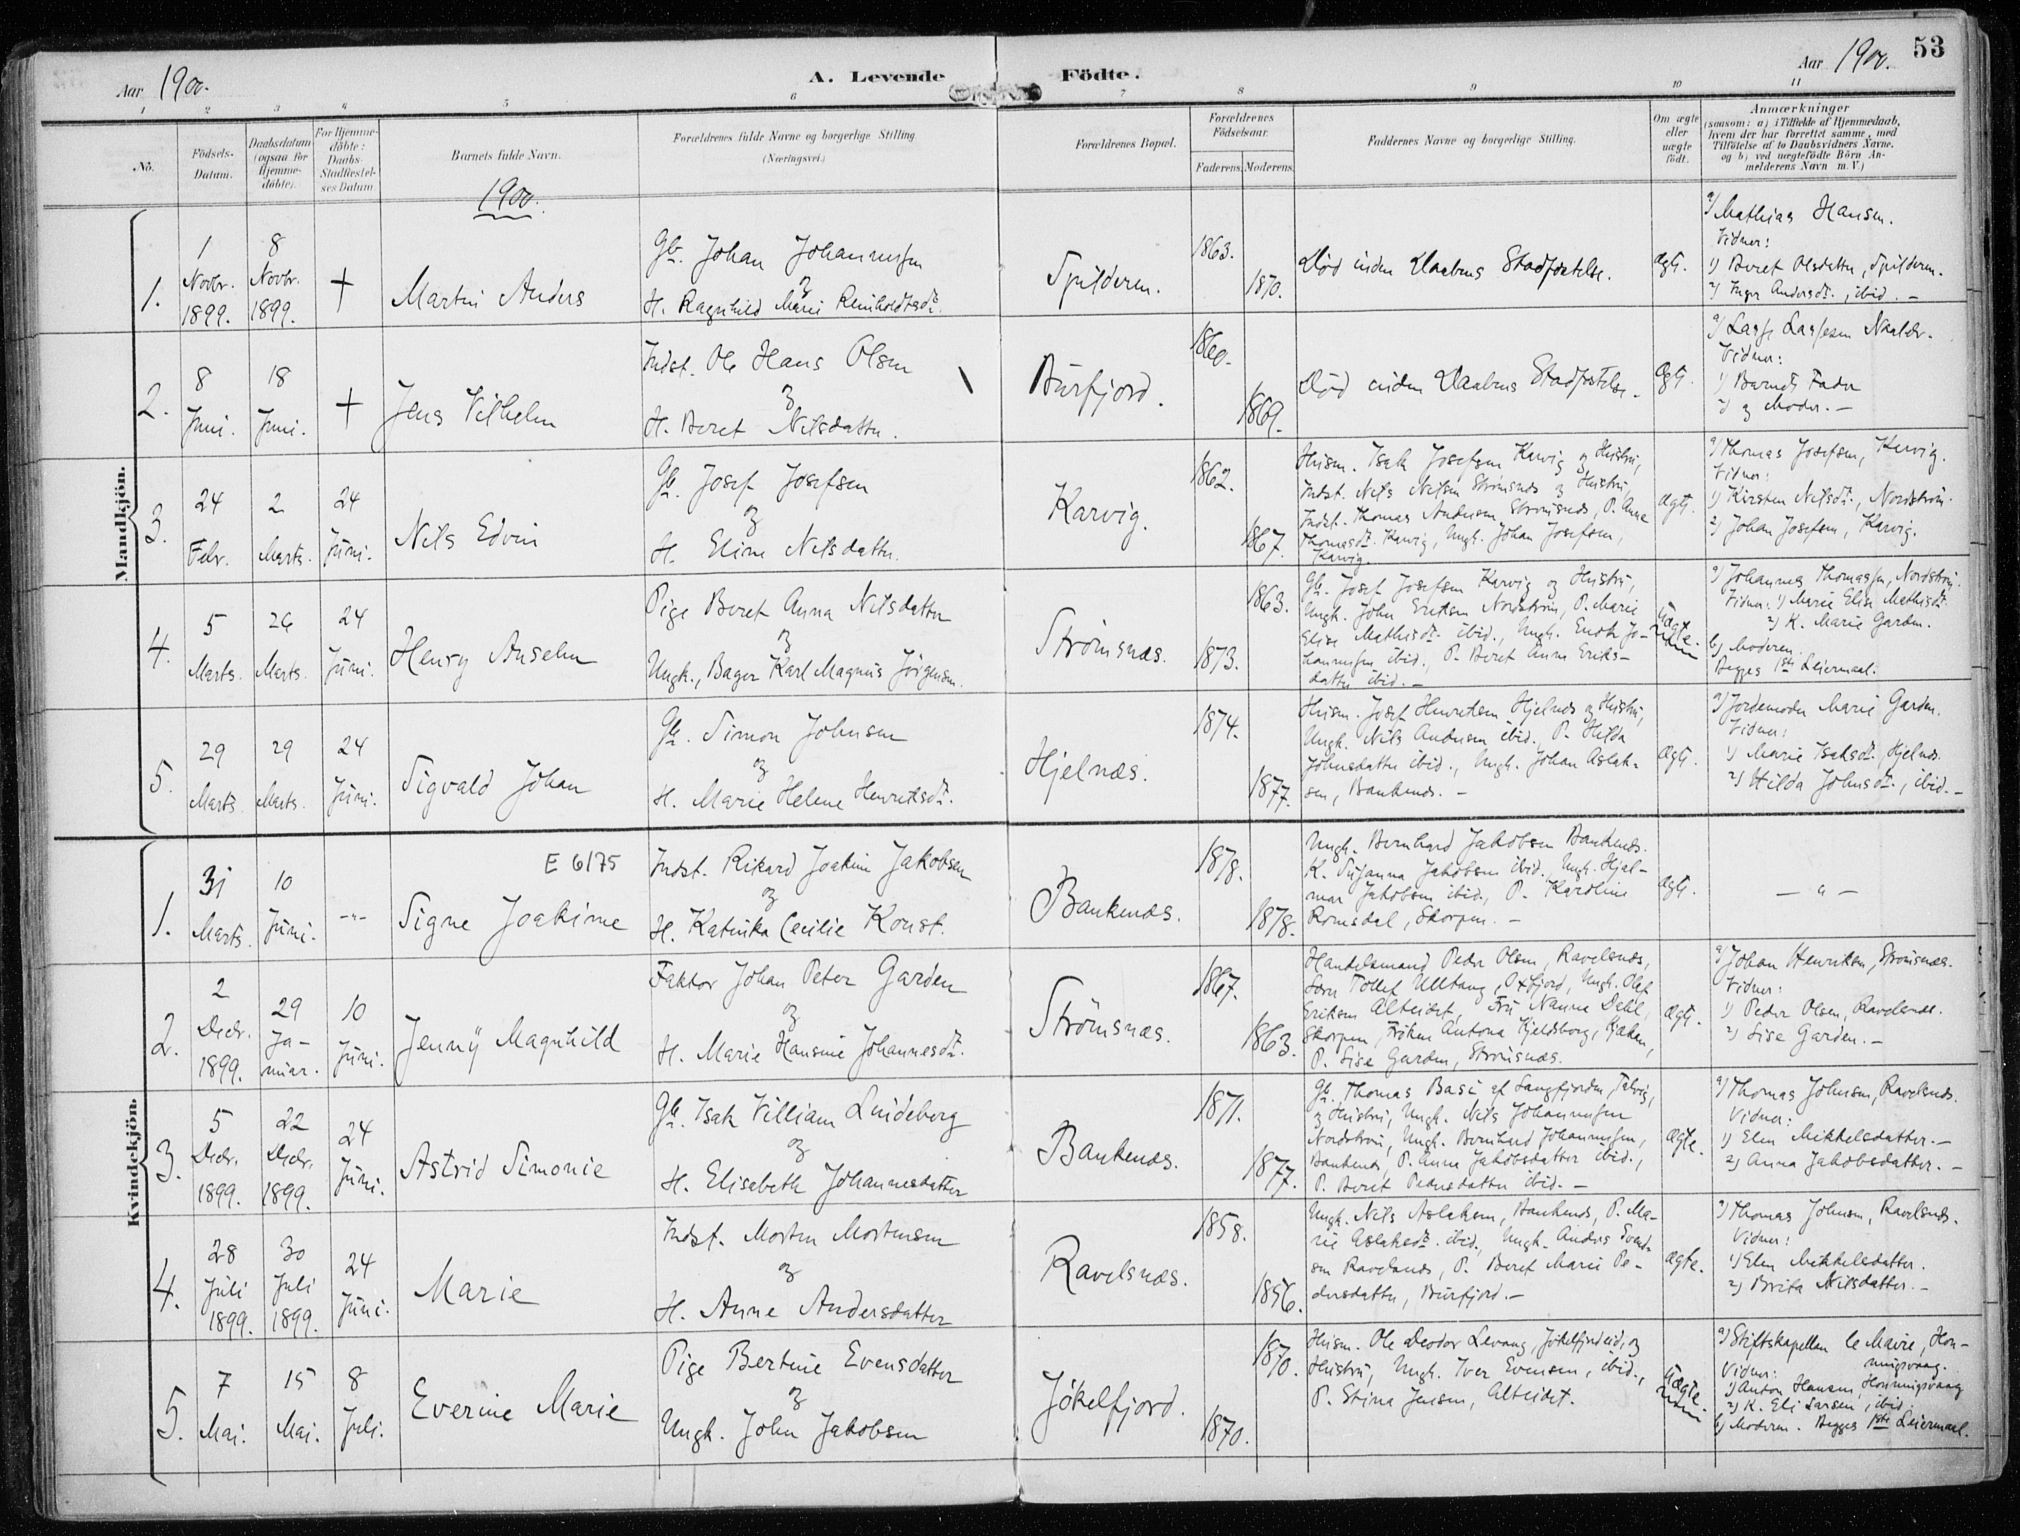 Aar 1900. A. Levende Födte. Aar 1900. 53
1 2 3 4 5 6 7 8 9 10 11
No.
Födsels-
Datum.
Daabsdatum
(ogsaa for
Hjemme-
döbte).
For Hjemme-
döbte:
Daabs-
Stadfæstel-
ses Datum.
Barnets fulde Navn.
Forældrenes fulde Navne og borgerlige Stilling
(Næringsvei.)
Forældrenes Bopæl.
Forældrenes
Födselsaar.
Faderens. Moderens.
Faddernes Navne og borgerlige Stilling.
Om ægte
eller
uægte
født.
Anmærkninger
(saasom: a) i Tilfælde af Hjemmedaab,
hvem der har forrettet samme, med
Tilföielse af to Daabsvidners Navne.
og b) ved uægtefödte Börn An-
melderens Navn m. V.)
1900.
Mandkjön.
1.
1
Novbr.
1899.
8
Novbr.
1899.
+
Martin Anders
Gbr. Johan Johannessen
og
H. Ragnhild Marie Reinholdtsdtr.
Spilderen.
1863.
1870.
Død inden Daabens Stadfæstelse.
ægt.
a) Mathias Hansen.
Vidner:
1) Beret Olsdatter, Spilderen.
2) Inger Andersdtr., ibid. –
2.
8
Juni.
18
Juni.
+
Jens Vilhelm
Indst. Ole Hans Olsen
og
H. Beret Nilsdatter.
Burfjord.
1860.
1869.
Død inden Daabens Stadfæstelse.
ægt.
a) Lasse Lassesen
Vidner:
1) Barnets Fader
2) og Moder. –
3.
24
Febr.
2
Marts.
24
Juni.
Nils Edvin
Gbr. Josef Josefsen
og
H. Eline Nilsdatter.
Karvig.
1862.
1867.
Husm. Isak Josefsen Karvig og Hustru,
Indst. Nils Nilsen Strömsnæs og Hustru
Indst. Thomas Andersen Strömsnæs, P. Anne
Thomasdtr. Karvig, Ungk. Johan Josefsen,
Karvig.
ægt.
a) Thomas Josefsen, Karvig.
Vidner:
1) Kirsten Nilsdtr., Nordström.
2) Johan Josefsen, Karvig.
4.
5
Marts.
26
Marts.
24
Juni.
Henry Anselm
Pige Beret Anna Nilsdatter
og
Ungk., Bager Karl Magnus Jörgensen.
Strömsnæs.
1873.
1863.
Gbr. Josef Josefsen Karvig og Hustru,
Ungk. John Eriksen Nordström, P. Marie
Elise Mathisdtr. ibid., Ungk. Enok Jo-
hannessen ibid., P. Beret Anne Eriks-
datter ibid. –
Uægte.
a) Johannes Thomassen, Nordström.
Vidner: 1) Marie Elise Mathisdtr.
2) K. Marie Garden.
b) Moderen.
Begges 1ste Leiermaal.
5.
29
Marts.
29
Marts.
24
Juni.
Sigvald Johan
Gbr. Simon Johnsen
og
H. Marie Helene Henriksdtr.
Hjelnæs.
1874.
1877.
Husm. Josef Henriksen Hjelnæs og Hustru,
Ungk. Nils Andersen ibid. P. Hilda
Johnsdatter ibid., Ungk. Johan Aslak-
sen, Bankenæs. –
ægt.
a) Jordemoder Marie Garden.
Vidner:
1) Marie Isaksdtr., Hjelnæs.
2) Hilda Johnsdtr., ibid. –
Kvindekjön.
1.
31
Marts.
10
Juni.
-"-
E 6/75
Signe Joakime
Indst. Rikard Joakim Jakobsen
og
H. Katinka Cecilie Konst.
Bankenæs.
1878.
1878.
Ungk. Bernhard Jakobsen Bankenæs.
K. Susanna Jakobsen ibid. Ungk. Hjal-
mar Jakobsen ibid., P. Karoline
Romsdal, Skorpen. –
ægt.
– " –
2.
2
Decbr.
1899.
29
Ja-
nuar.
10
Juni.
Jenny Magnhild
Faktor Johan Peter Garden
og
H. Marie Hansine Johannesdtr.
Strömsnæs.
1867.
1863.
Handelsmand Peder Olsen, Ravelsnæs,
Tollef Ulltang, Oxfjord, Ungk. Olaf
Eriksen Alteidet, Fru Nanna Dahl,
Skorpen, Frøken Antona Kjeldsberg,
P. Lise Garden, Strömsnæs.
ægt.
a) Johan Henriksen, Strömsnæs.
Vidner:
1) Peder Olsen, Ravelsnæs.
2) Lise Garden. –
3.
5
Decbr.
1899.
22
Decbr.
1899.
24
Juni.
Astrid Simonie
Gbr. Isak Villiam Lindeberg
og
H. Elisabeth Johannesdatter
Bankenæs.
1871.
1877.
Gbr. Thomas Basi af Langfjorden, Talvig,
og Hustru, Ungk. Nils Johannessen
Nordström, Ungk. Bernhard Johannessen,
Bankenæs, P. Anna Jakobsdatter ibid.,
P. Beret Pedersdatter ibid. –
ægte.
a) Thomas Johnsen, Ravelsnæs.
Vidner:
1) Elen Mikkelsdatter. –
2) Anna Jakobsdatter. –
4.
28
Juli
1899.
30
Juli
1899.
24
Juni.
Marie
Indst. Morten Mortensen
og
H. Anne Andersdatter
Ravelsnæs.
1858.
1856.
Ungk. Nils Aslaksen, Bankenæs, P. Ma-
rie Aslaksdtr. ibid., Ungk. Anders Svend-
sen Ravelsnæs, P. Beret Marie Pe-
dersdatter, Burfjord. –
ægte.
a) Thomas Johnsen, Ravelsnæs.
Vidner:
1) Elen Mikkelsdatter.
2) Brita Nilsdatter. –
5.
7
Mai.
15
Mai.
8
Juli.
Everine Marie
Pige Bertine Evensdatter
og
Ungk. John Jakobsen
Jökelfjord.
1870.
1870.
Husm. Ole Deodor Levang, Jökelfjordeid, og
Hustru, Ungk. Iver Evensen, ibid.,
P. Stina Jensen, Alteidet.
Uægte.
a) Stiftskapellan le Maire, Hon-
ningsvaag.
Vidner:
1) Anton Hansen, Honningsvaag
2) K. Eli Larsen, ibid.
b) Moderen. Begges 1ste Leiermaal.